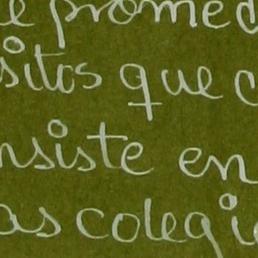 e promed
sitos que c
nsiste en
as colegi